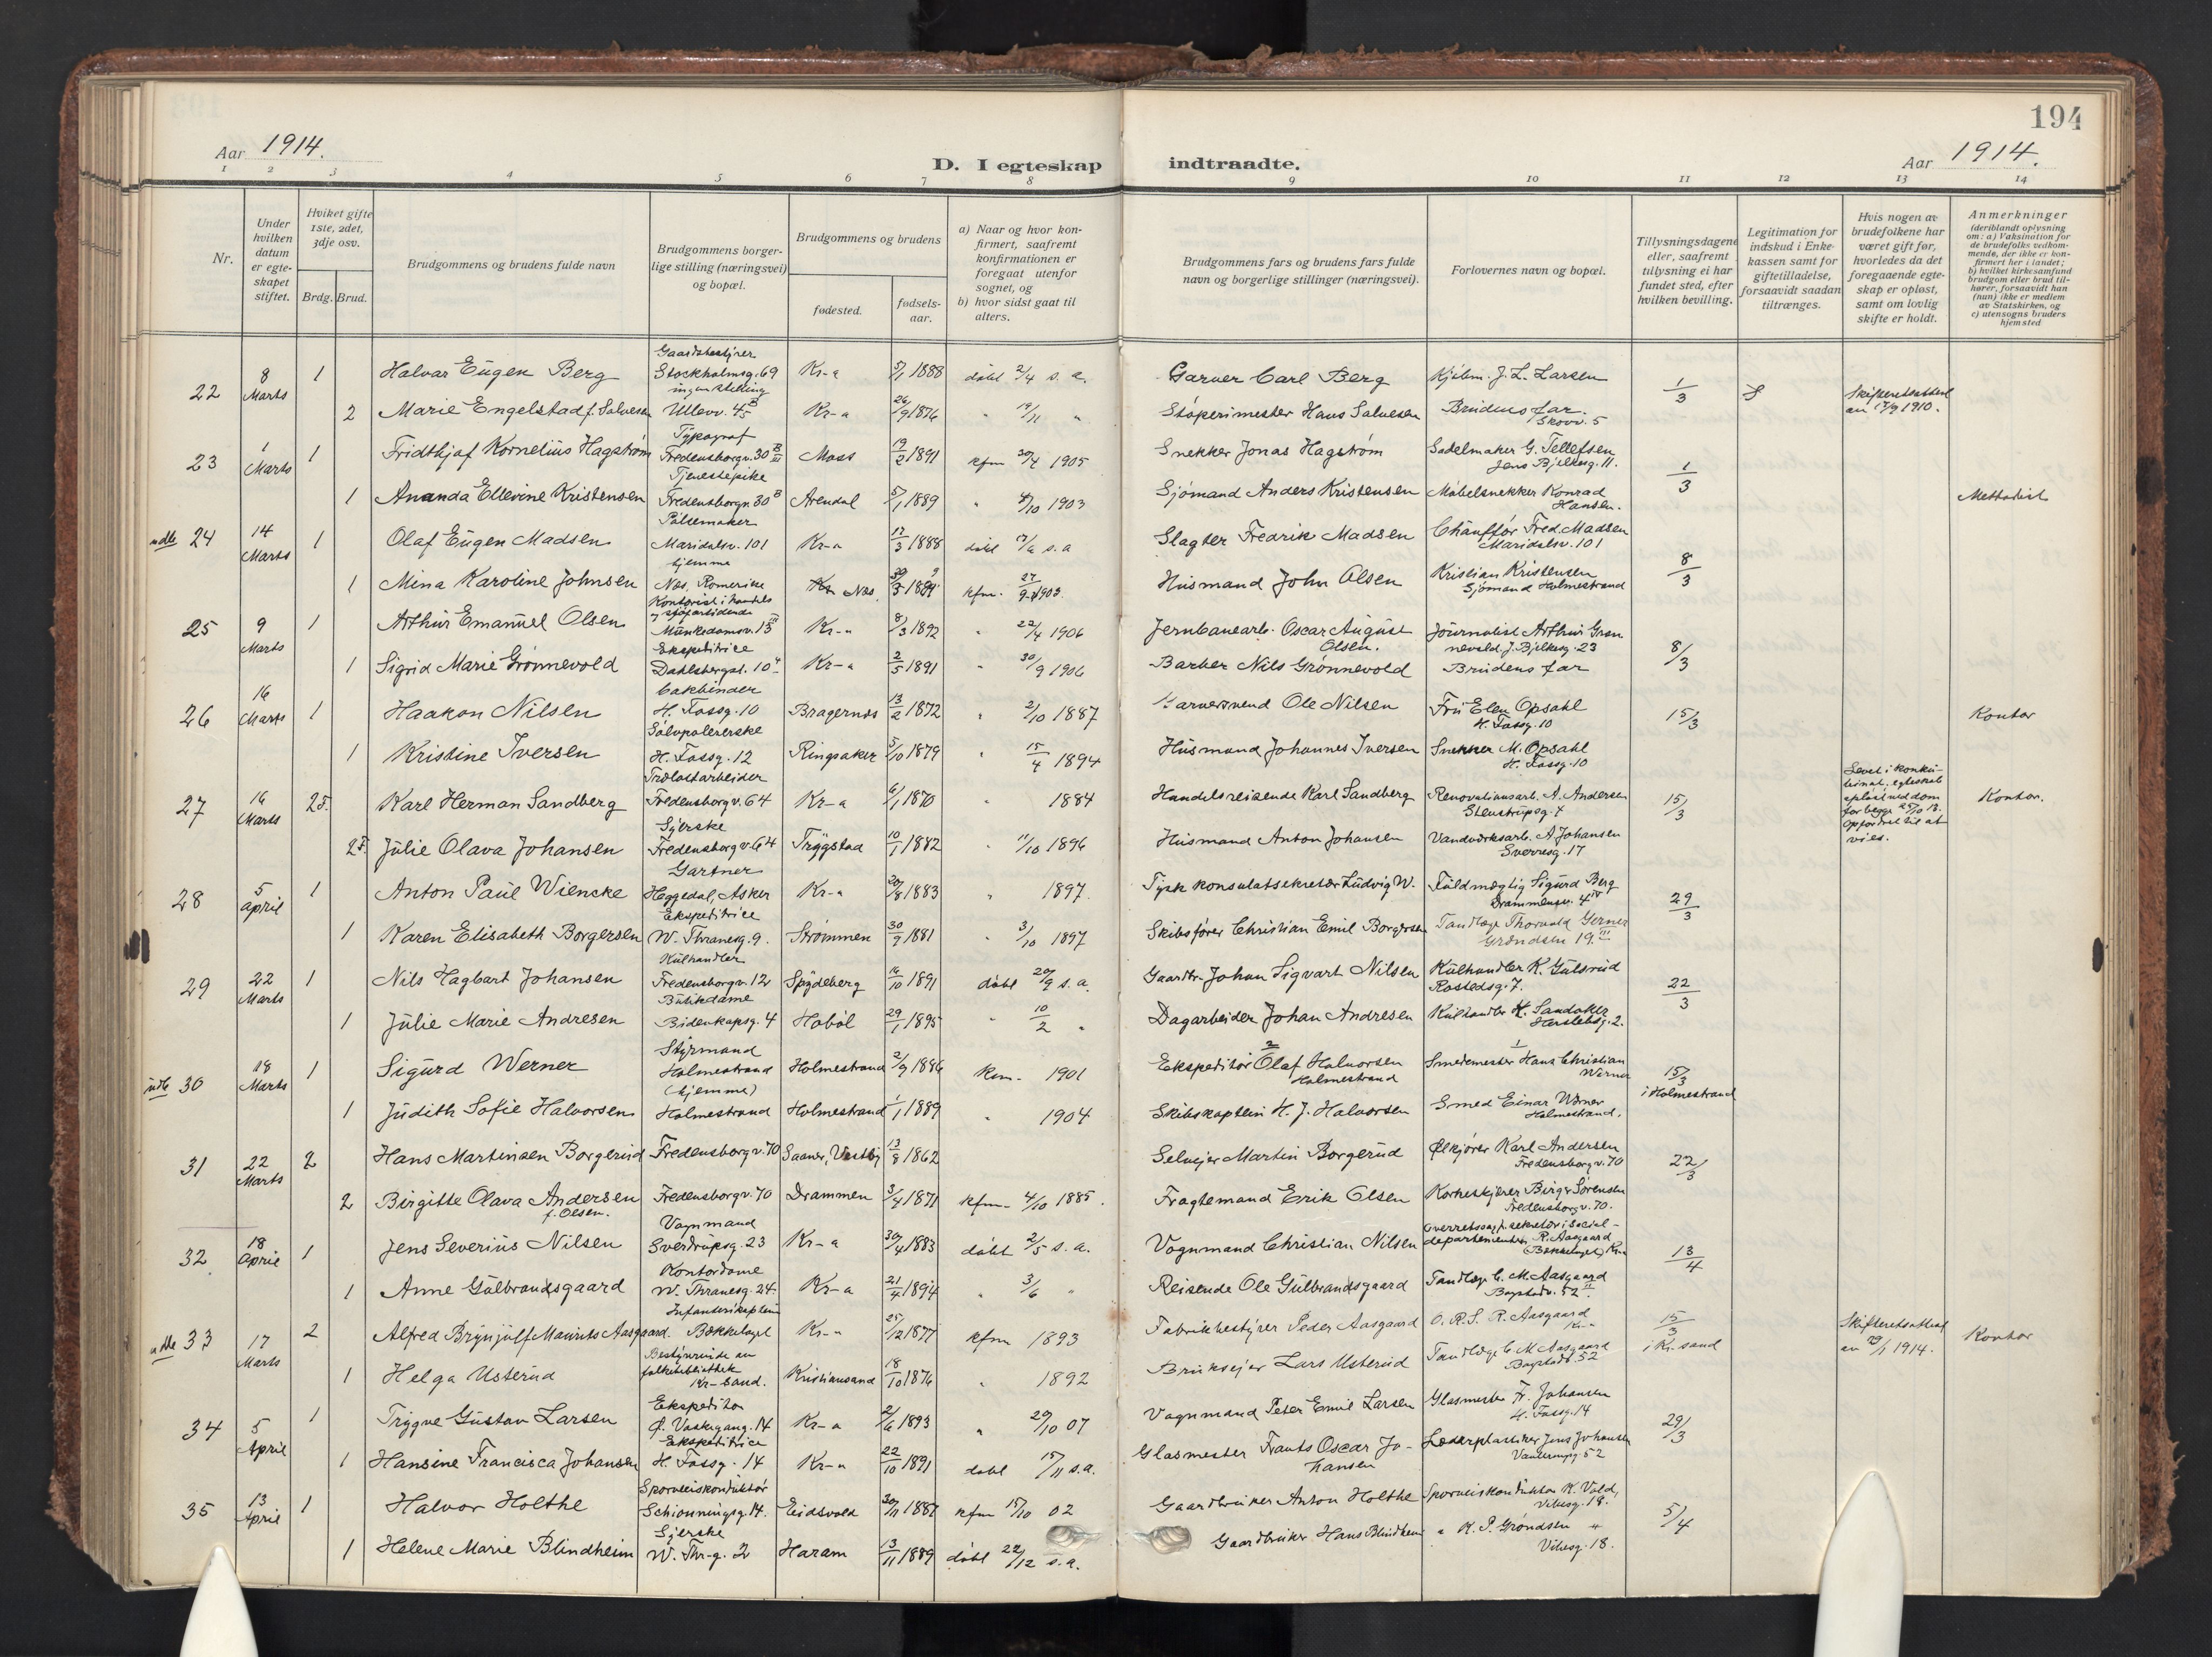 194
Aar 1914.
D. I egteskap indtraadte.
Aar 1914.
1 2 3 4 5 6 7 8 9 10 11 12 13 14
Nr.
Under hvilken datum er egteskapet stiftet.
Hviket gifte 1ste, 2det, 3dje osv.
Brdg. Brud.
Brudgommens og brudens fulde navn
Brudgommens borgerlige stilling (næringsvei) og bopæl.
Brudgommens og brudens
fødested.
fødselsaar.
a) Naar og hvor konfirmert, saafremt konfirmationen er foregaat utenfor sognet, og
b) hvor sidst gaat til alters.
Brudgommens fars og brudens fars fulde navn og borgerlige stillinger (næringsvei).
Forlovernes navn og bopæl.
Tillysningsdagene eller, saafremt tillysning ei har fundet sted, efter hvilken bevilling.
Legitimation for indskud i Enkekassen samt for giftetilladelse, forsaavidt saadan tiltrænges.
Hvis nogen av brudefolkene har været gift før, hvorledes da det foregaaende egteskap er opløst, samt om lovlig skifte er holdt.
Anmerkninger (deriblandt oplysning om: a) Vaksination for de brudefolks vedkommende, der ikke er konfirmert her i landet; b) hvilket kirkesamfund brudgom eller brud tilhører, forsaavidt han (hun) ikke er medlem av Statskirken, og c) utensogns bruders hjemsted
22 8 Marts 1 Halvar Eugen Berg Gaardsbestyrer Stockholmsg. 69 Kr-a 5/1 1888 døbt 2/4 s. a. Garver Carl Berg Kjøbm. J. L. Larsen 1/3 Skifteretsattest av 17/9 1910.
2 Marie Engelstad f. Salvesen ingen stilling Ullevv. 45 B Kr-a 26/9 1876 " 19/11 " Støperimester Hans Salvesen Brudens far. Skovv. 5
23 1 Marts 1 Fridthjof Kornelius Hagstrøm Typograf Fredensborgv. 30 B III Moss 19/2 1891 kfm 30/4 1905 Snekker Jonas Hagstrøm Sadelmaker G. Tellefsen Jens Bjelkesg. 11. 1/3
1 Ananda Ellevine Kristensen Tjenestepike Fredensborgv. 30 B Arendal 5/1 1889 " 4/10 1903 Sjømand Anders Kristensen Møbelsnekker Konrad Hansen. Methodist
udb 24 14 Marts 1 Olaf Eugen Madsen Pølsemaker Maridalsv. 101 Kr-a 17/3 1888 døbt s. a Slagter Fredrik Madsen Chauffør Fred. Madsen Maridalsv. 101 8/3
1 Mina Karoline Johnsen hjemme Nes, Romerike Nes. 1889 kfm. 27/9 1903. Husmand John Olsen Kristian Kristensen Sjømand Holmestrand
25 9 Marts 1 Arthur Emanuel Olsen Kontorist i handels og sjøfartstidende Munkedamsv. 13 III Kr-a 8/3 1892 " 22/4 1906 Jernbanearb. Oscar August Olsen. Journalist Arthur Grønnevold. J. Bjelkesg. 23 8/3
1 Sigrid Marie Grønnevold Ekspeditrice Dahlsbergst. 10 Kr-a 2/5 1891 " 30/9 1906 Barber Nils Grønnevold Brudens far
26 16 Marts 1 Haakon Nilsen H. Fossg. 10 Bragernes 13/2 1872 " 2/10 1887 Garversvend Ole Nilsen Fru Elen Opsahl H. Fossg. 10 15/3 Kontor
1 Kristine Iversen Sølvpolererske H. Fossg. 12 Ringsaker 5/10 1879 " 15/4 1894 Husmand Johannes Iversen Snekker M. Opsahl H. Fossg. 10
27 16 Marts 2 F. Karl Herman Sandberg Trælastarbeider Fredensborgv. 64 Kr-a 6/1 1870 " 1884 Handelsreisende Karl Sandberg Renovationsarb. A. Andersen Stenstrupsg. 7 15/3 Levet i konkubinat, egteskab opløst ved dom for begge 25/10 13. Opfordret til at vies. Kontor.
2 F. Julie Olava Johansen Syerske Fredensborgv. 64 Trygstad 10/1 1882 " 11/10 1896 Husmand Anton Johansen Vandverksarb. A. Johansen Sverresg. 17
28 5 April 1 Anton Paul Wiencke Gartner Heggedal, Asker Kr-a 20/8 1883 " 1897 Tysk konsulatsekretær Ludvig W. Fuldmægtig Sigurd Berg Drammensv. 4 IV 29/3
1 Karen Elisabeth Borgersen Ekspeditrice W. Thranesg. 9. Strømmen 30/9 1881 " 3/10 1897 Skibsfører Christian Emil Borgersen Tandlæge Thorvald Gerner Grændsen 19. III
29 22 Marts 1 Nils Hagbart Johansen Kulhandler Fredensborgv. 12 Spydeberg 16/10 1891 døbt 20/9 s. a. Gaardbr. Johan Sigvart Nilsen Kulhandler K. Gulsrud Rostedsg. 7. 22/3
1 Julie Marie Andresen Butikdame Bidenkapsg. 4 Hobøl 29/1 1895 " 10/2 " Dagarbeider Johan Andresen Kulhandler H. Sandaker Herslebsg. 2.
udb 30 18 Marts 1 Sigurd Werner Styrmand Holmestrand (hjemme) Holmestrand 2/9 1886 kfm. 1901 Ekspeditør Olaf Halvorsen Holmestrand Smedemester Hans Christian Werner 15/3 i Holmestrand
1 Judith Sofie Halvorsen Holmestrand Holmestrand 1/1 1889 " 1904 Skibskaptein H. J. Halvorsen Smed Einar Werner Holmestrand.
31 22 Marts 2 Hans Martinsen Borgerud Fredensborgv. 70 Saaner, Vestby 13/8 1862 Selveier Martin Borgerud Ølkjører Karl Andersen Fredensborgv. 70 22/3
2 Birgitte Olava Andersen f. Olsen. Fredensborgv. 70 Drammen 3/4 1871 kfm. 4/10 1885. Fragtemand Erik Olsen Korkeskjærer Birger Sørensen Fredensborgv. 70.
32 18 April 1 Jens Severius Nilsen Vognmand Sverdrupsg. 23 Kr-a 30/4 1883 døbt 2/5 s. a. Vognmand Christian Nilsen Overretssagf. sekretær i Socialdepartementet R. Aasgaard 13/4
1 Anne Gulbrandsgaard Kontordame W. Thranesg. 24 Kr-a 21/4 1894 " 3/6 " Reisende Ole Gulbrandsgaard Tandlæge C. M. Aasgaard Bogstadv. 52 II
udb 33 17 Marts 2 Alfred Brynjulf Maurits Aasgaard. Infanterikaptein Bækkelaget Kr-a 25/12 1877 kfm 1893 Fabrikbestyrer Peder Aasgaard O. R. S. R. Aasgaard Kr-a 15/3 i Kr.sand Skifteretsattest av 29/1 1914. Kontor
1 Helga Usterud Bestyrerinde av folkebibliothek Kr-sand. Kristiansand 18/10 1876 " 1892 Brukseier Lars Usterud Tandlæge C. M. Aasgaard Bogstadv. 52
34 5 April 1 Trygve Gustav Larsen Ekspeditør Ø. Vaskegang. 14 Kr-a 2/6 1893 " 20/10 07 Vognmand Peter Emil Larsen Glasmester Fr. Johansen H. Fossg. 14 29/3
1 Hansine Francisca Johansen Ekspeditrice H. Fossg. 14 Kr-a 22/10 1891 døbt 15/11 s. a. Glasmester Frants Oscar Johansen Jens Johansen 52
35 13 April 1 Halvor Holthe Sporveiskonduktør Schiønningsg. 14. Eidsvold 30/11 1887 kfm 15/10 02 Gaardbruker Anton Holthe Sporveiskonduktør K. Vold, Vibesg. 18. 5/4
1 Helene Marie Blindheim Syerske W. Thr-g. 2 Haram 13/11 1889 døbt 22/12 s. a. Gaardbruker Hans Blindheim " K. P. Grøndsen " Vibesg. 18.